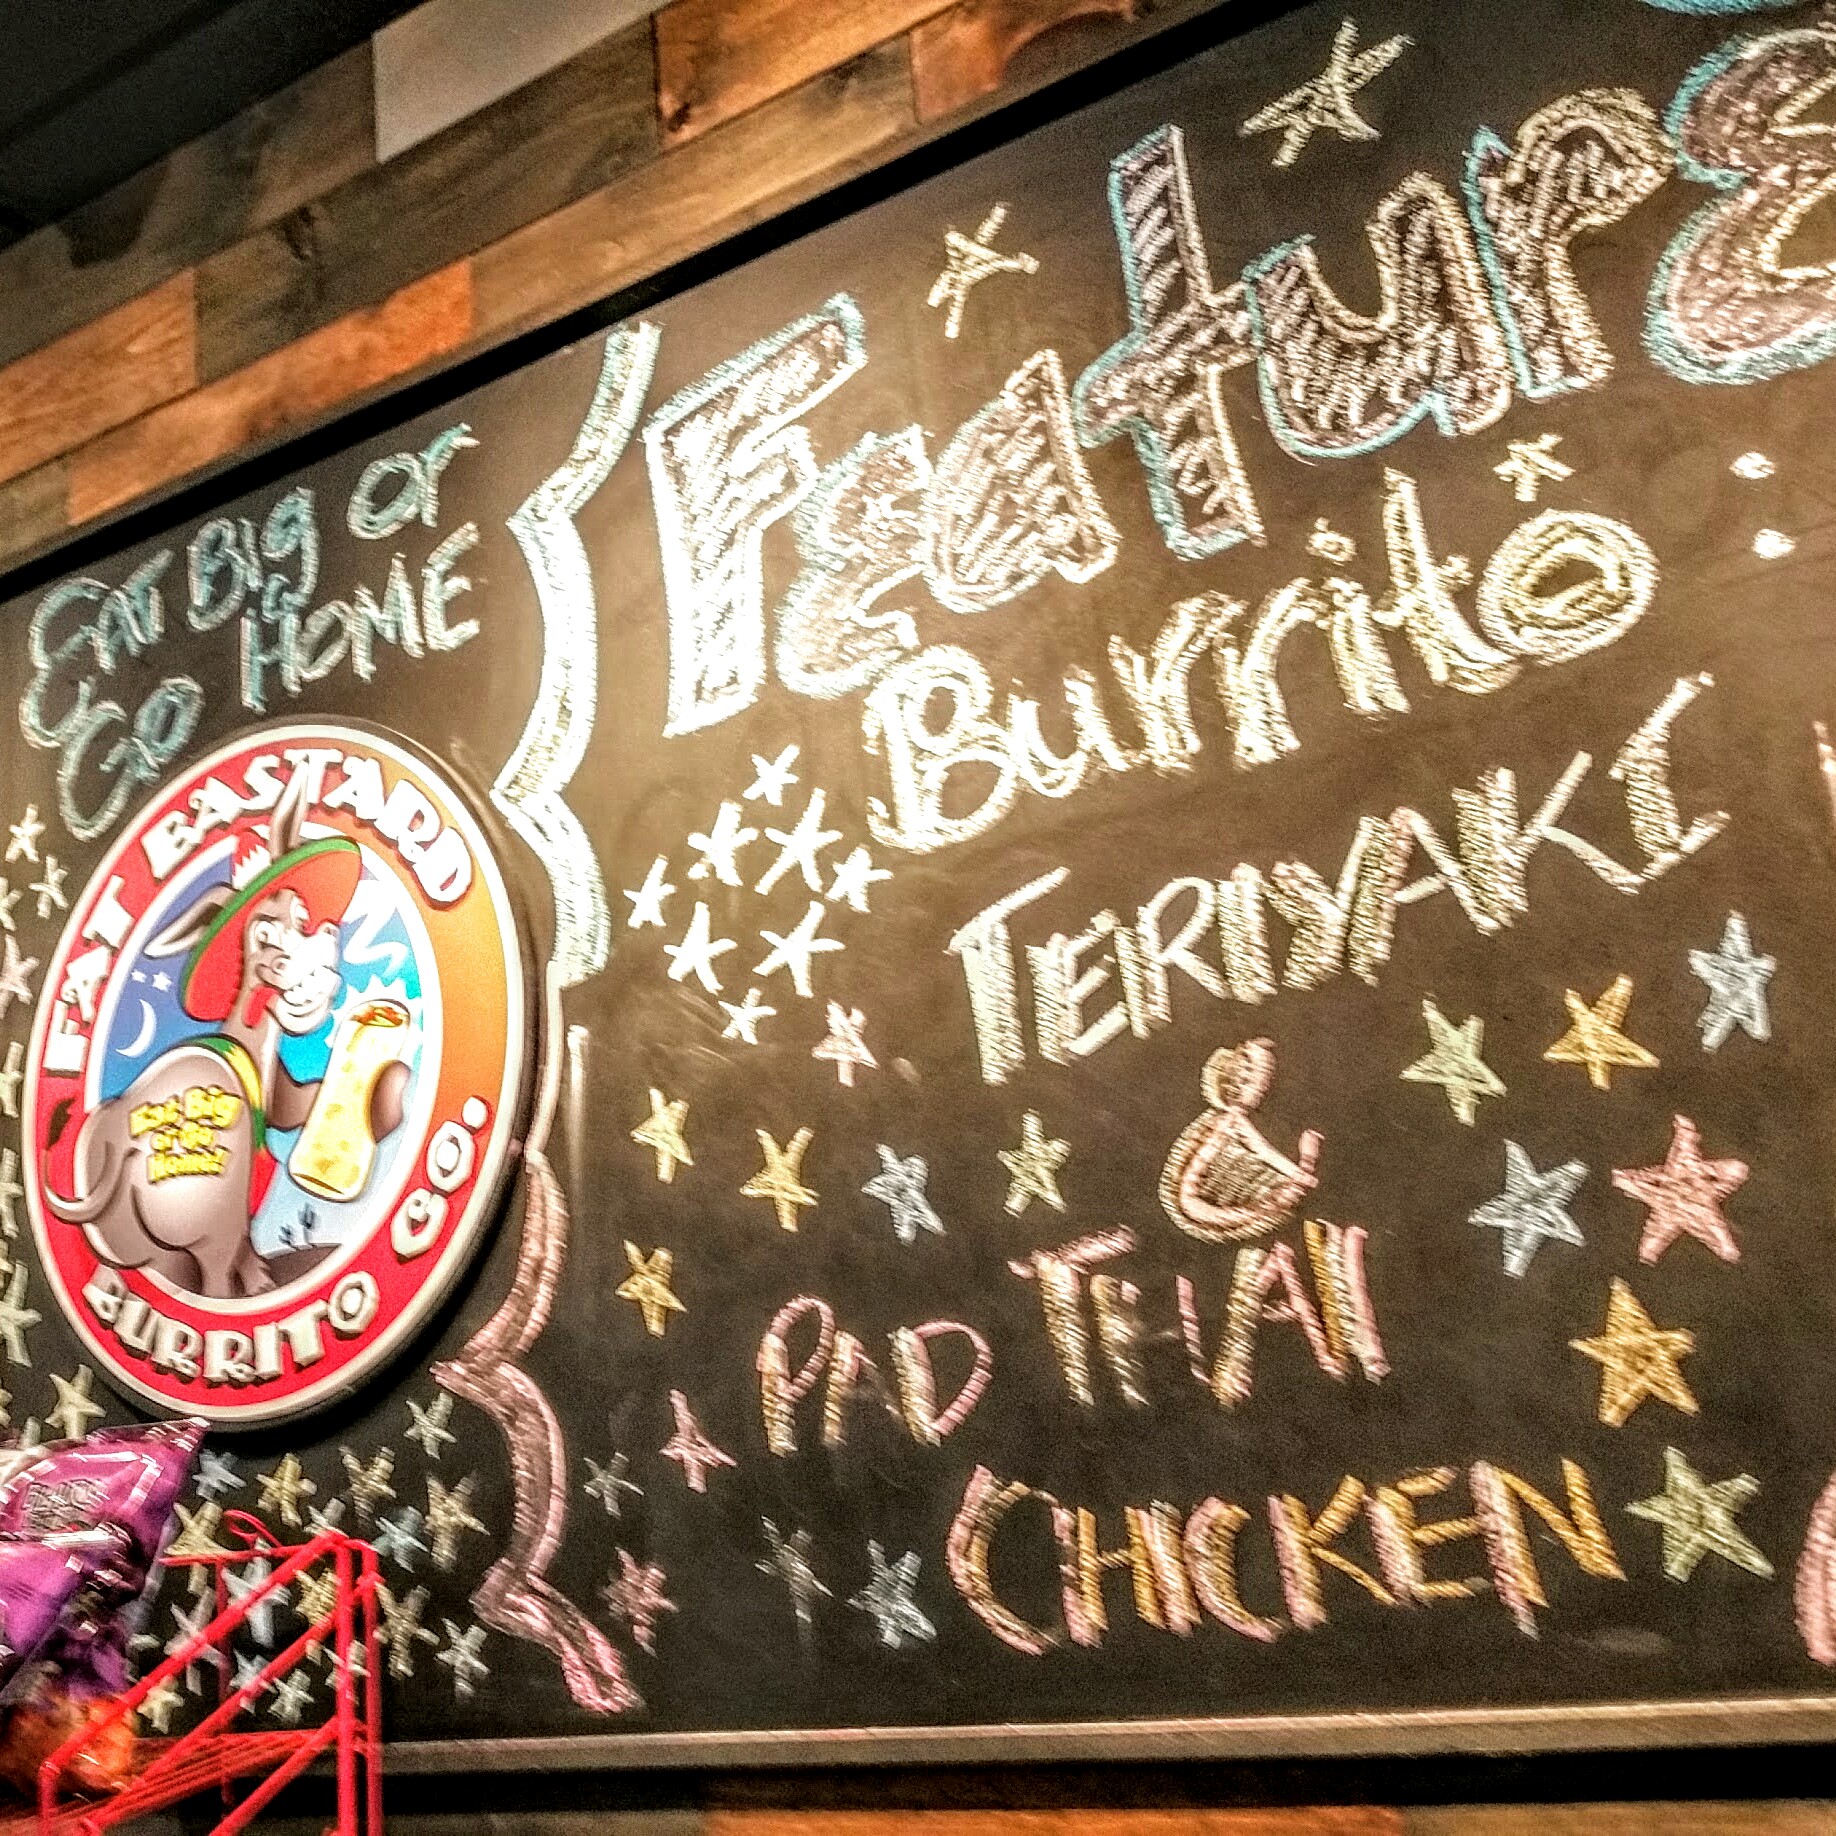 EAT BIG or
GO HOME
FAT BASTARD
BURRITO CO.
Eat Big
or Go
Home!
Feature
Burrito :
TERIYAKI
&
PAD THAI
CHICKEN